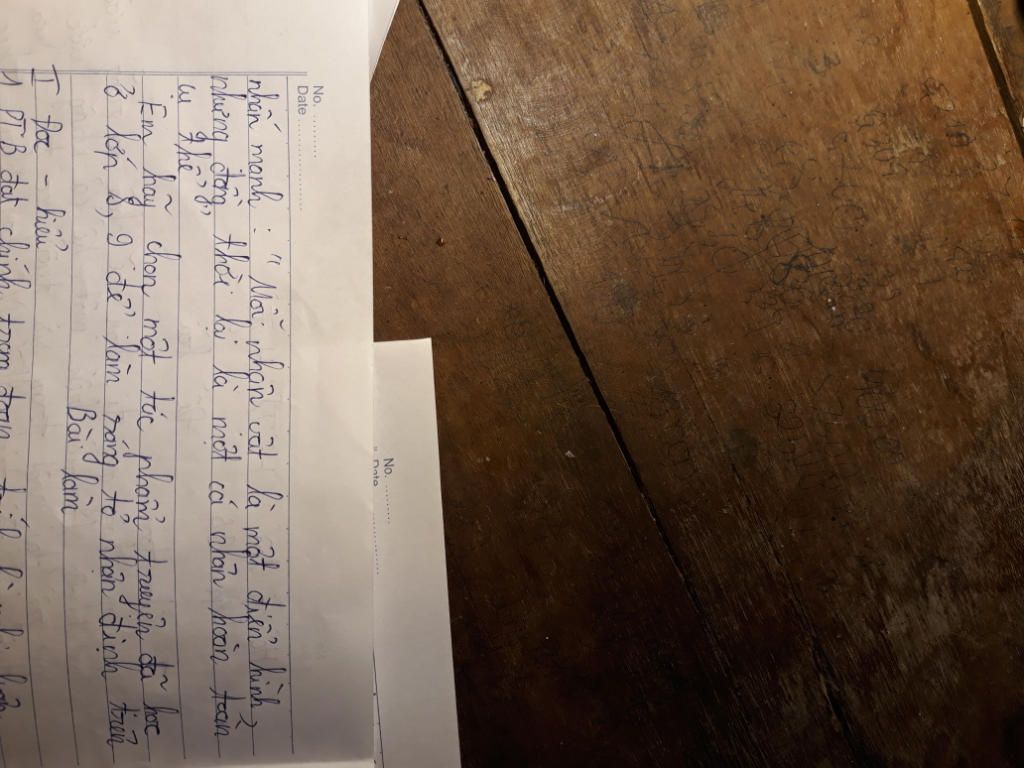 No. ........
Date ..................
nhấn mạnh : " Mỗi nhân vật là một điển hình
nhưng đồng thời lại là một cá nhân hoàn toàn
cụ thể",
Em hãy chọn một tác phẩm truyện đã học
ở lớp 8, 9 để làm sáng tỏ nhận định trên
Bài làm
I Đọc - hiểu
1) PTBĐ chính trong đoạn trích là
No. ........
Date ..................